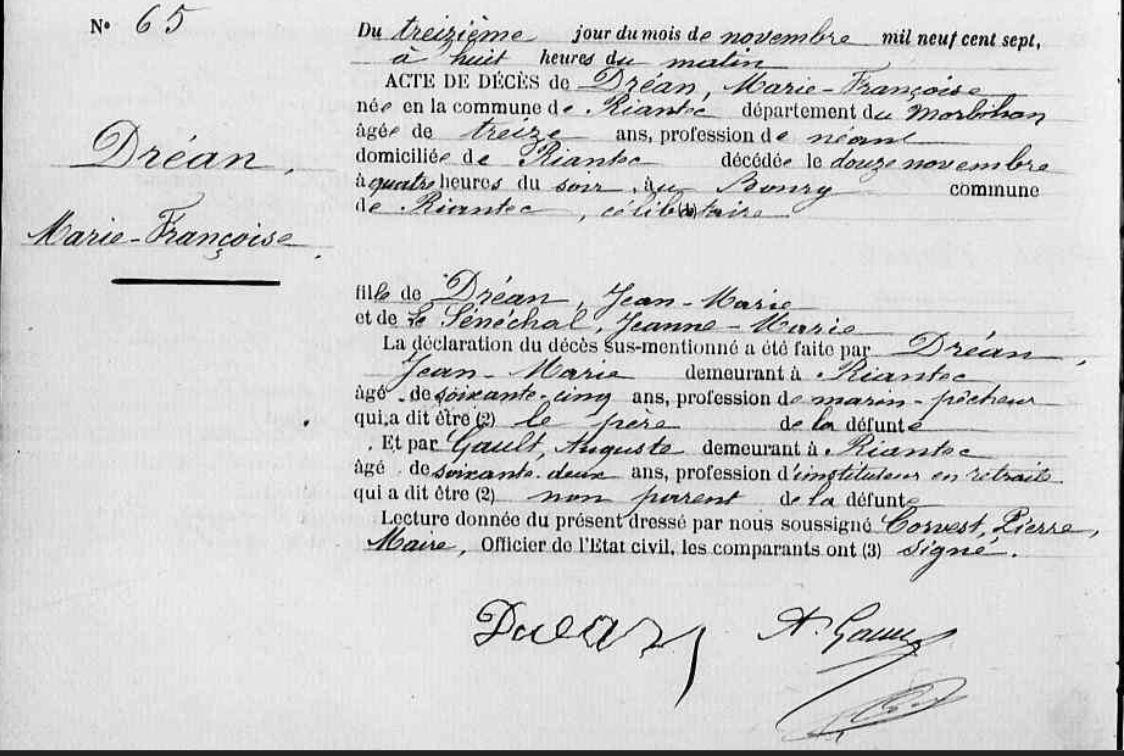 N° 65
Du treizième jour du mois de novembre mil neuf cent sept,
à huit heures du matin
ACTE DE DÉCÈS de Dréan, Marie-Françoise
née en la commune de Riantec département du Morbihan
âgée de treize ans, profession de néant
Dréan,
domiciliée de Riantec décédée le douze novembre
à quatre heures du soir, au commune
de Riantec, célibataire (1)
Marie-Françoise.
fille de Dréan, Jean-Marie
et de Le Sénéchal, Jeanne-Marie
La déclaration du décès sus-mentionné a été faite par Dréan,
Jean-Marie demeurant à Riantec
âgé de soixante-cinq ans, profession de marin-pêcheur
qui a dit être (2) le père de la défunte
Et par Gault, Auguste demeurant à Riantec
âgé de soixante-deux ans, profession d'instituteur en retraite
qui a dit être (2) non parent de la défunte
Lecture donnée du présent dressé par nous soussigné Corvest, Pierre,
Maire, Officier de l'Etat civil, les comparants ont (3) signé.
A. Gault